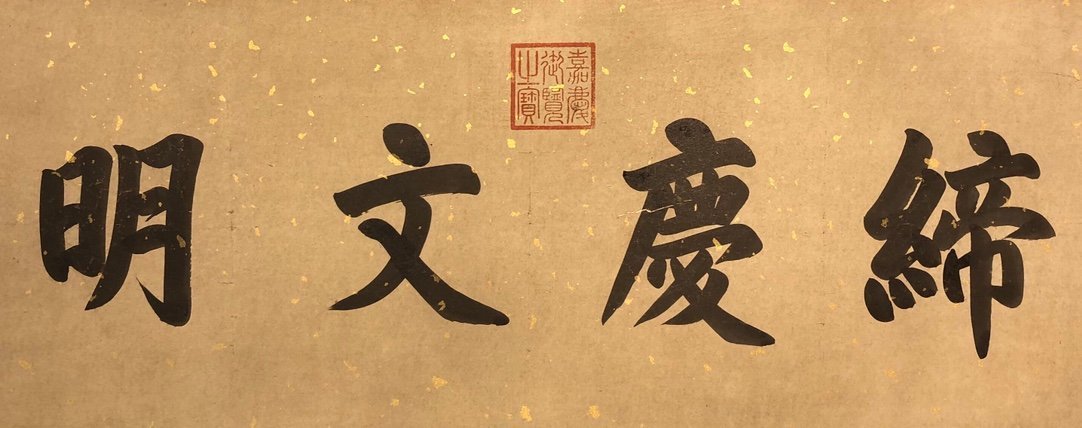 締慶文明
嘉慶
御覽
之寶